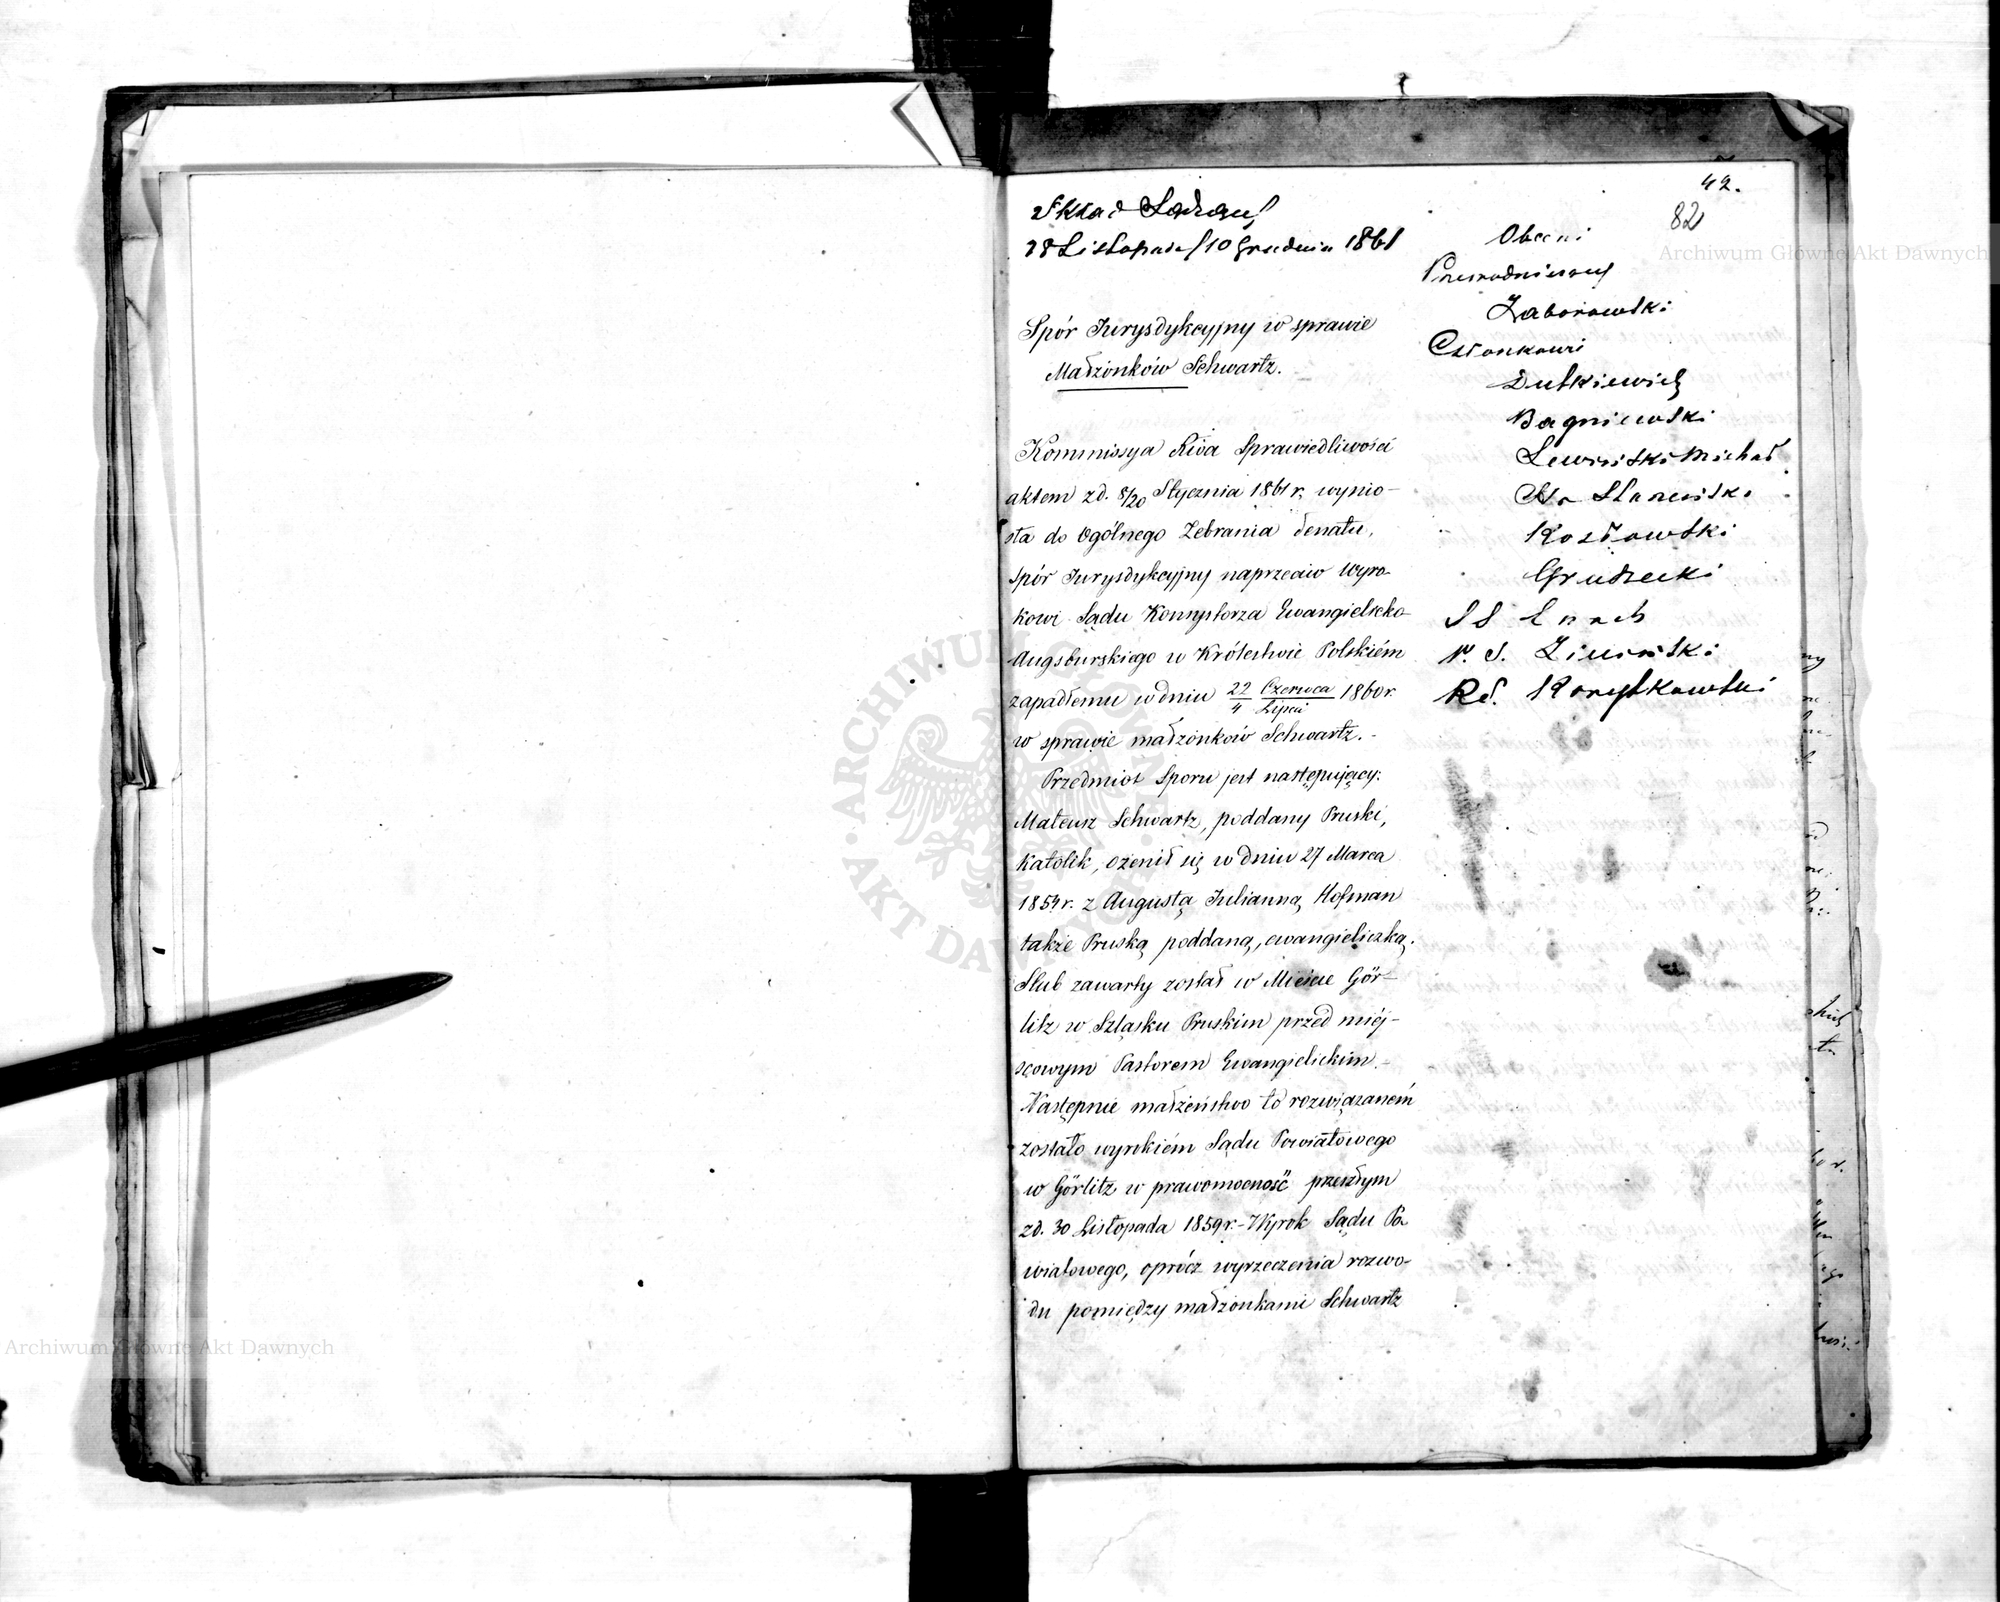 42.
82
Skład Sądzący
28 Listopada/10 Grudnia 1861
Spór Jurysdykcyjny w sprawie
Małżonków Schwartz.
Obecni
Przewodniczący
Zaborowski
Członkowie
Dutkiewicz
Bagniewski
Lewiński Michał
Kozłowski
Grudzecki
Kommissya Rzdą Sprawiedliwości
aktem z d. 8/20 Stycznia 1861 r. wynio-
sła do Ogólnego Zebrania Senatu,
spór Jurysdykcyjny naprzeciw Wyro-
kowi Sądu Konsystorza Ewangielicko
Augsburskiego w Królestwie Polskiém
zapadłemu w dniu 22 Czerwca / 4 Lipca 1860 r.
w sprawie małżonków Schwartz.-
Przedmiot Sporu jest następujący:
Mateusz Schwartz, poddany Pruski,
Katolik, ożenił się w dniu 27 Marca
1854 r. z Augustą Julianną Hofman
także Pruską poddaną, ewangieliczką.
Ślub zawarty został w Mieście Gör-
litz w Szląsku Pruskim przed miéj-
scowym Pastorem Ewangielickim.-
Następnie małżeństwo to rozwiązaném
zostało wyrokiém Sądu Powiatowego
w Görlitz w prawomocność przeszłym
z d. 30 Listopada 1859 r.- Wyrok Sądu Po
wiatowego, oprócz wyrzeczenia rozwo-
du pomiędzy małżonkami Schwartz
Archiwum Główne Akt Dawnych
Archiwum Główne Akt Dawnych
ARCHIWUM GŁÓWNE AKT DAWNYCH